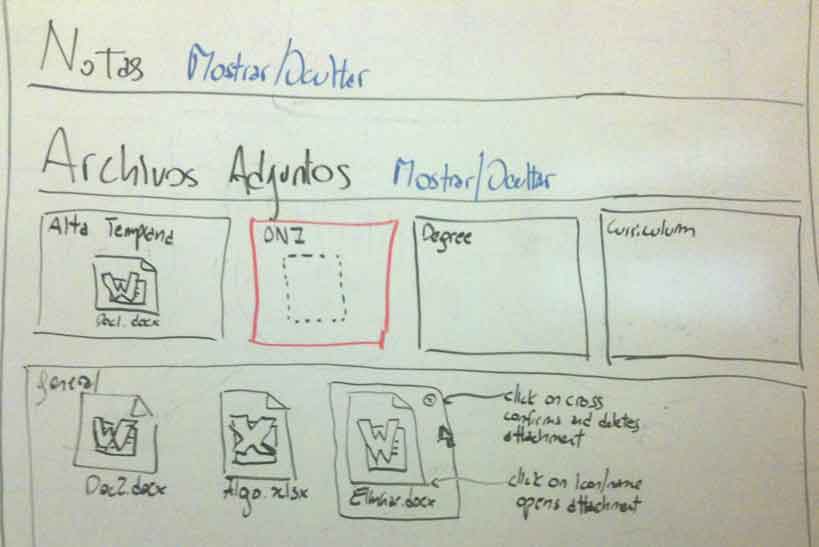 Notas Mostrar/Ocultar
Archivos Adjuntos Mostrar/Ocultar
Alta Temprana
W
Doc1.docx
DNI
Degree
Curriculum
General
W
Doc2.docx
X
Algo.xlsx
W
Eliminar.docx
click on cross
confirms and deletes
attachment
click on icon/name
opens attachment